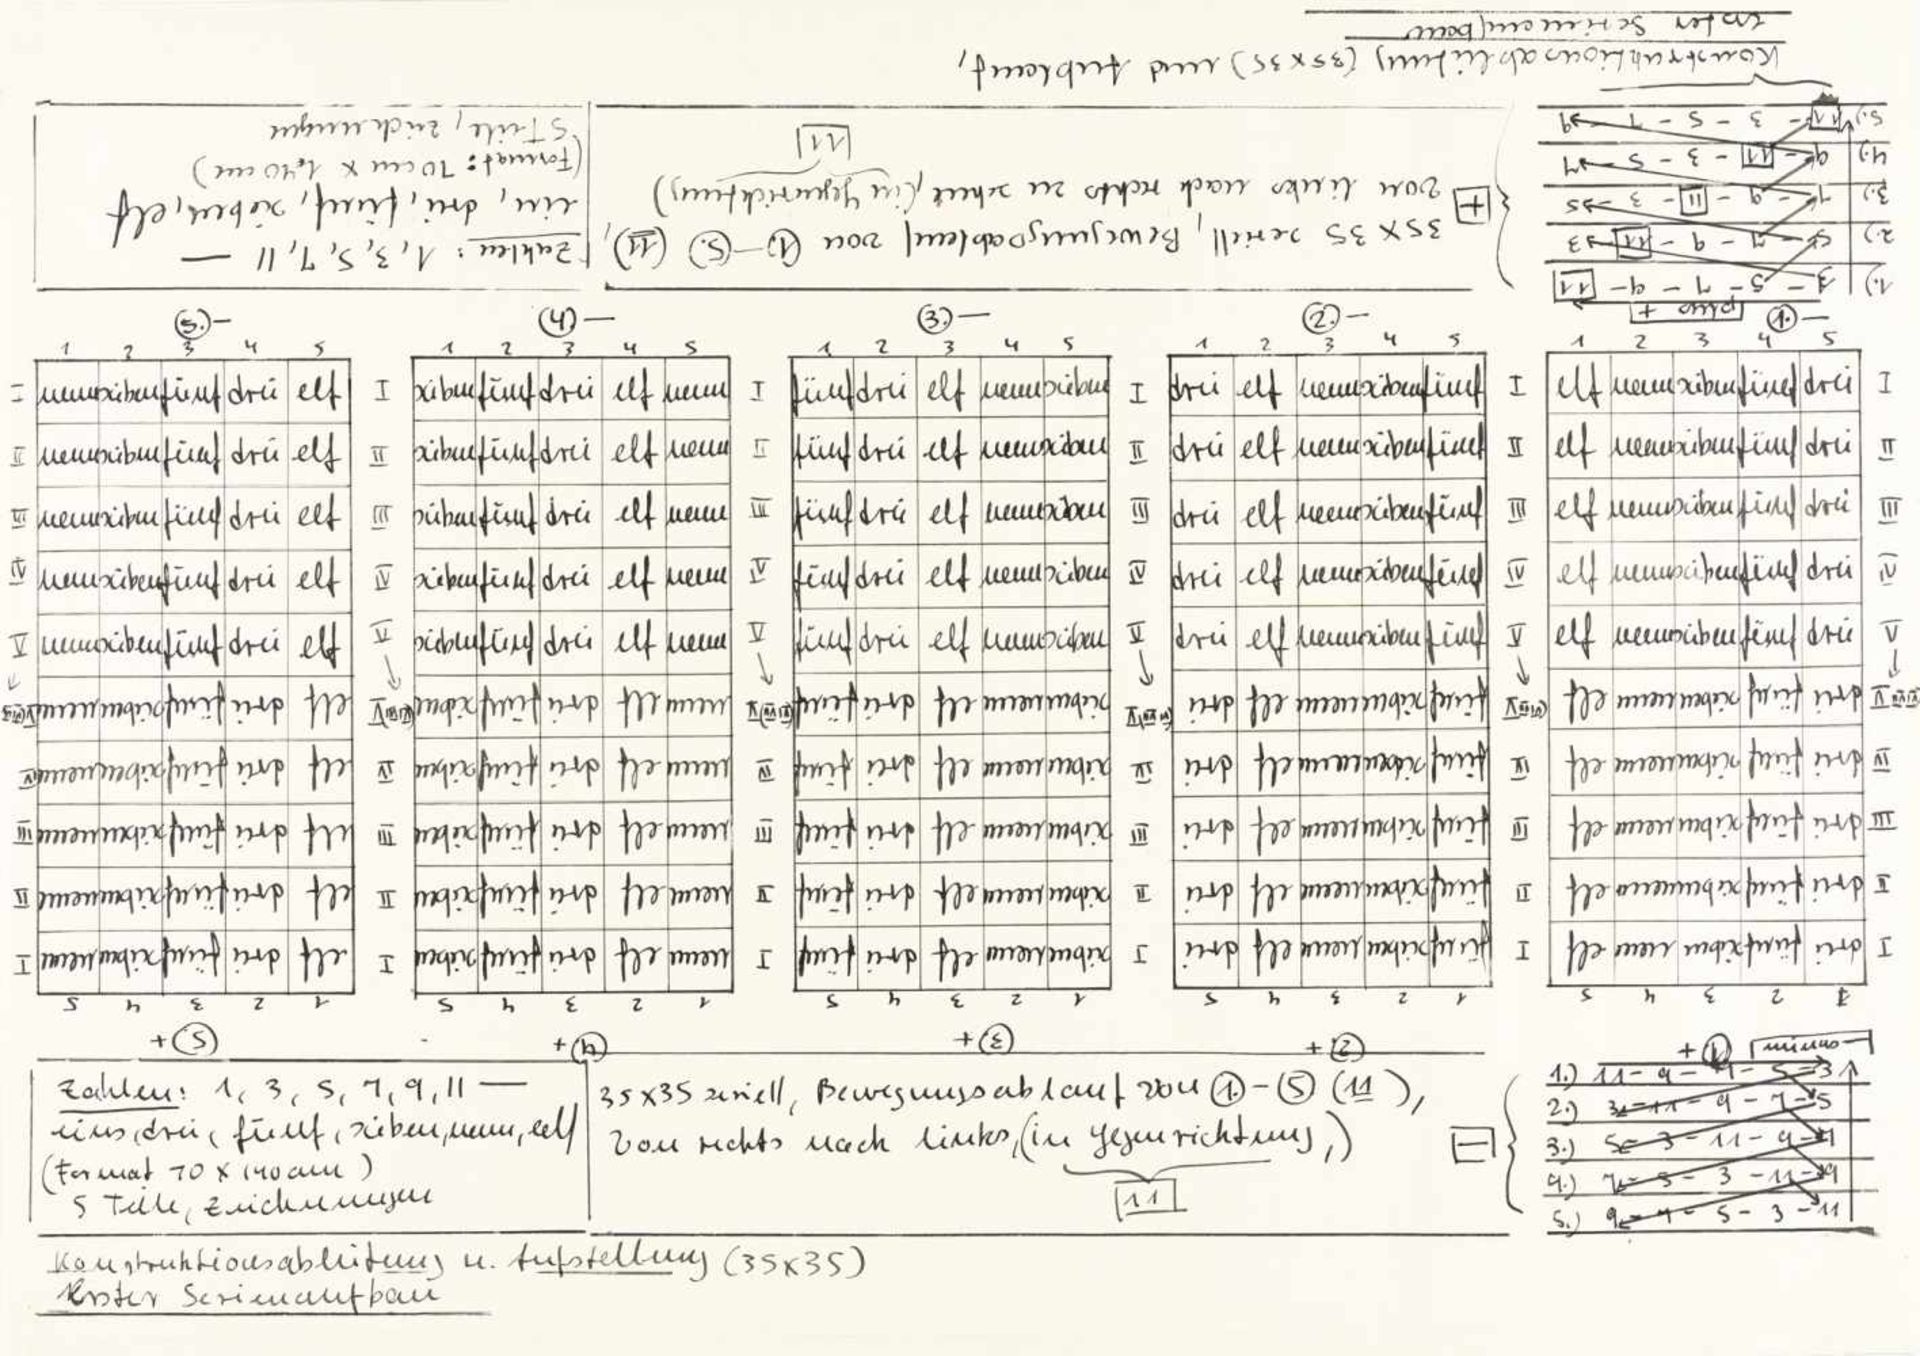 5.– 4.– 3.– 2.– 1.–
1 2 3 4 5 1 2 3 4 5 1 2 3 4 5 1 2 3 4 5 1 2 3 4 5
I neun sieben fünf drei elf I sieben fünf drei elf neun I fünf drei elf neun sieben I drei elf neun sieben fünf I elf neun sieben fünf drei I
II neun sieben fünf drei elf II sieben fünf drei elf neun II fünf drei elf neun sieben II drei elf neun sieben fünf II elf neun sieben fünf drei II
III neun sieben fünf drei elf III sieben fünf drei elf neun III fünf drei elf neun sieben III drei elf neun sieben fünf III elf neun sieben fünf drei III
IV neun sieben fünf drei elf IV sieben fünf drei elf neun IV fünf drei elf neun sieben IV drei elf neun sieben fünf IV elf neun sieben fünf drei IV
V neun sieben fünf drei elf V sieben fünf drei elf neun V fünf drei elf neun sieben V drei elf neun sieben fünf V elf neun sieben fünf drei V
minus –
Zahlen: 1, 3, 5, 7, 9, 11 —
eins, drei, fünf, sieben, neun, elf
(Format 70 x 140 cm)
5 Teile, Zeichnungen
35x35 seriell, Bewegungsablauf von 1.–5 (11),
von rechts nach links, (in Gegenrichtung,)
11
–
1.) 11 – 9 – 7 – 5 – 3
2.) 3 – 11 – 9 – 7 – 5
3.) 5 – 3 – 11 – 9 – 7
4.) 7 – 5 – 3 – 11 – 9
5.) 9 – 7 – 5 – 3 – 11
Konstruktionsableitung u. Aufstellung (35x35)
Erster Serienaufbau
1+ 2+ 3+ 4+ 5+
1 2 3 4 5 1 2 3 4 5 1 2 3 4 5 1 2 3 4 5 1 2 3 4 5
I drei fünf sieben neun elf I fünf sieben neun elf drei I sieben neun elf drei fünf I neun elf drei fünf sieben I elf drei fünf sieben neun I
II drei fünf sieben neun elf II fünf sieben neun elf drei II sieben neun elf drei fünf II neun elf drei fünf sieben II elf drei fünf sieben neun II
III drei fünf sieben neun elf III fünf sieben neun elf drei III sieben neun elf drei fünf III neun elf drei fünf sieben III elf drei fünf sieben neun III
IV drei fünf sieben neun elf IV fünf sieben neun elf drei IV sieben neun elf drei fünf IV neun elf drei fünf sieben IV elf drei fünf sieben neun IV
V drei fünf sieben neun elf V fünf sieben neun elf drei V sieben neun elf drei fünf V neun elf drei fünf sieben V elf drei fünf sieben neun V
plus +
1.) 3 – 5 – 7 – 9 – 11
2.) 5 – 7 – 9 – 11 – 3
3.) 7 – 9 – 11 – 3 – 5
4.) 9 – 11 – 3 – 5 – 7
5.) 11 – 3 – 5 – 7 – 9
+
35 x 35 seriell, Bewegungsablauf von 1–5. (11),
von links nach rechts zu sehen, (in Gegenrichtung)
11
Zahlen: 1, 3, 5, 7, 11 —
ein, drei, fünf, sieben, elf
(Format: 70 cm x 1,40 cm)
5 Teile, Zeichnungen
Konstruktionsableitung (35x35) und
Erster Serienaufbau